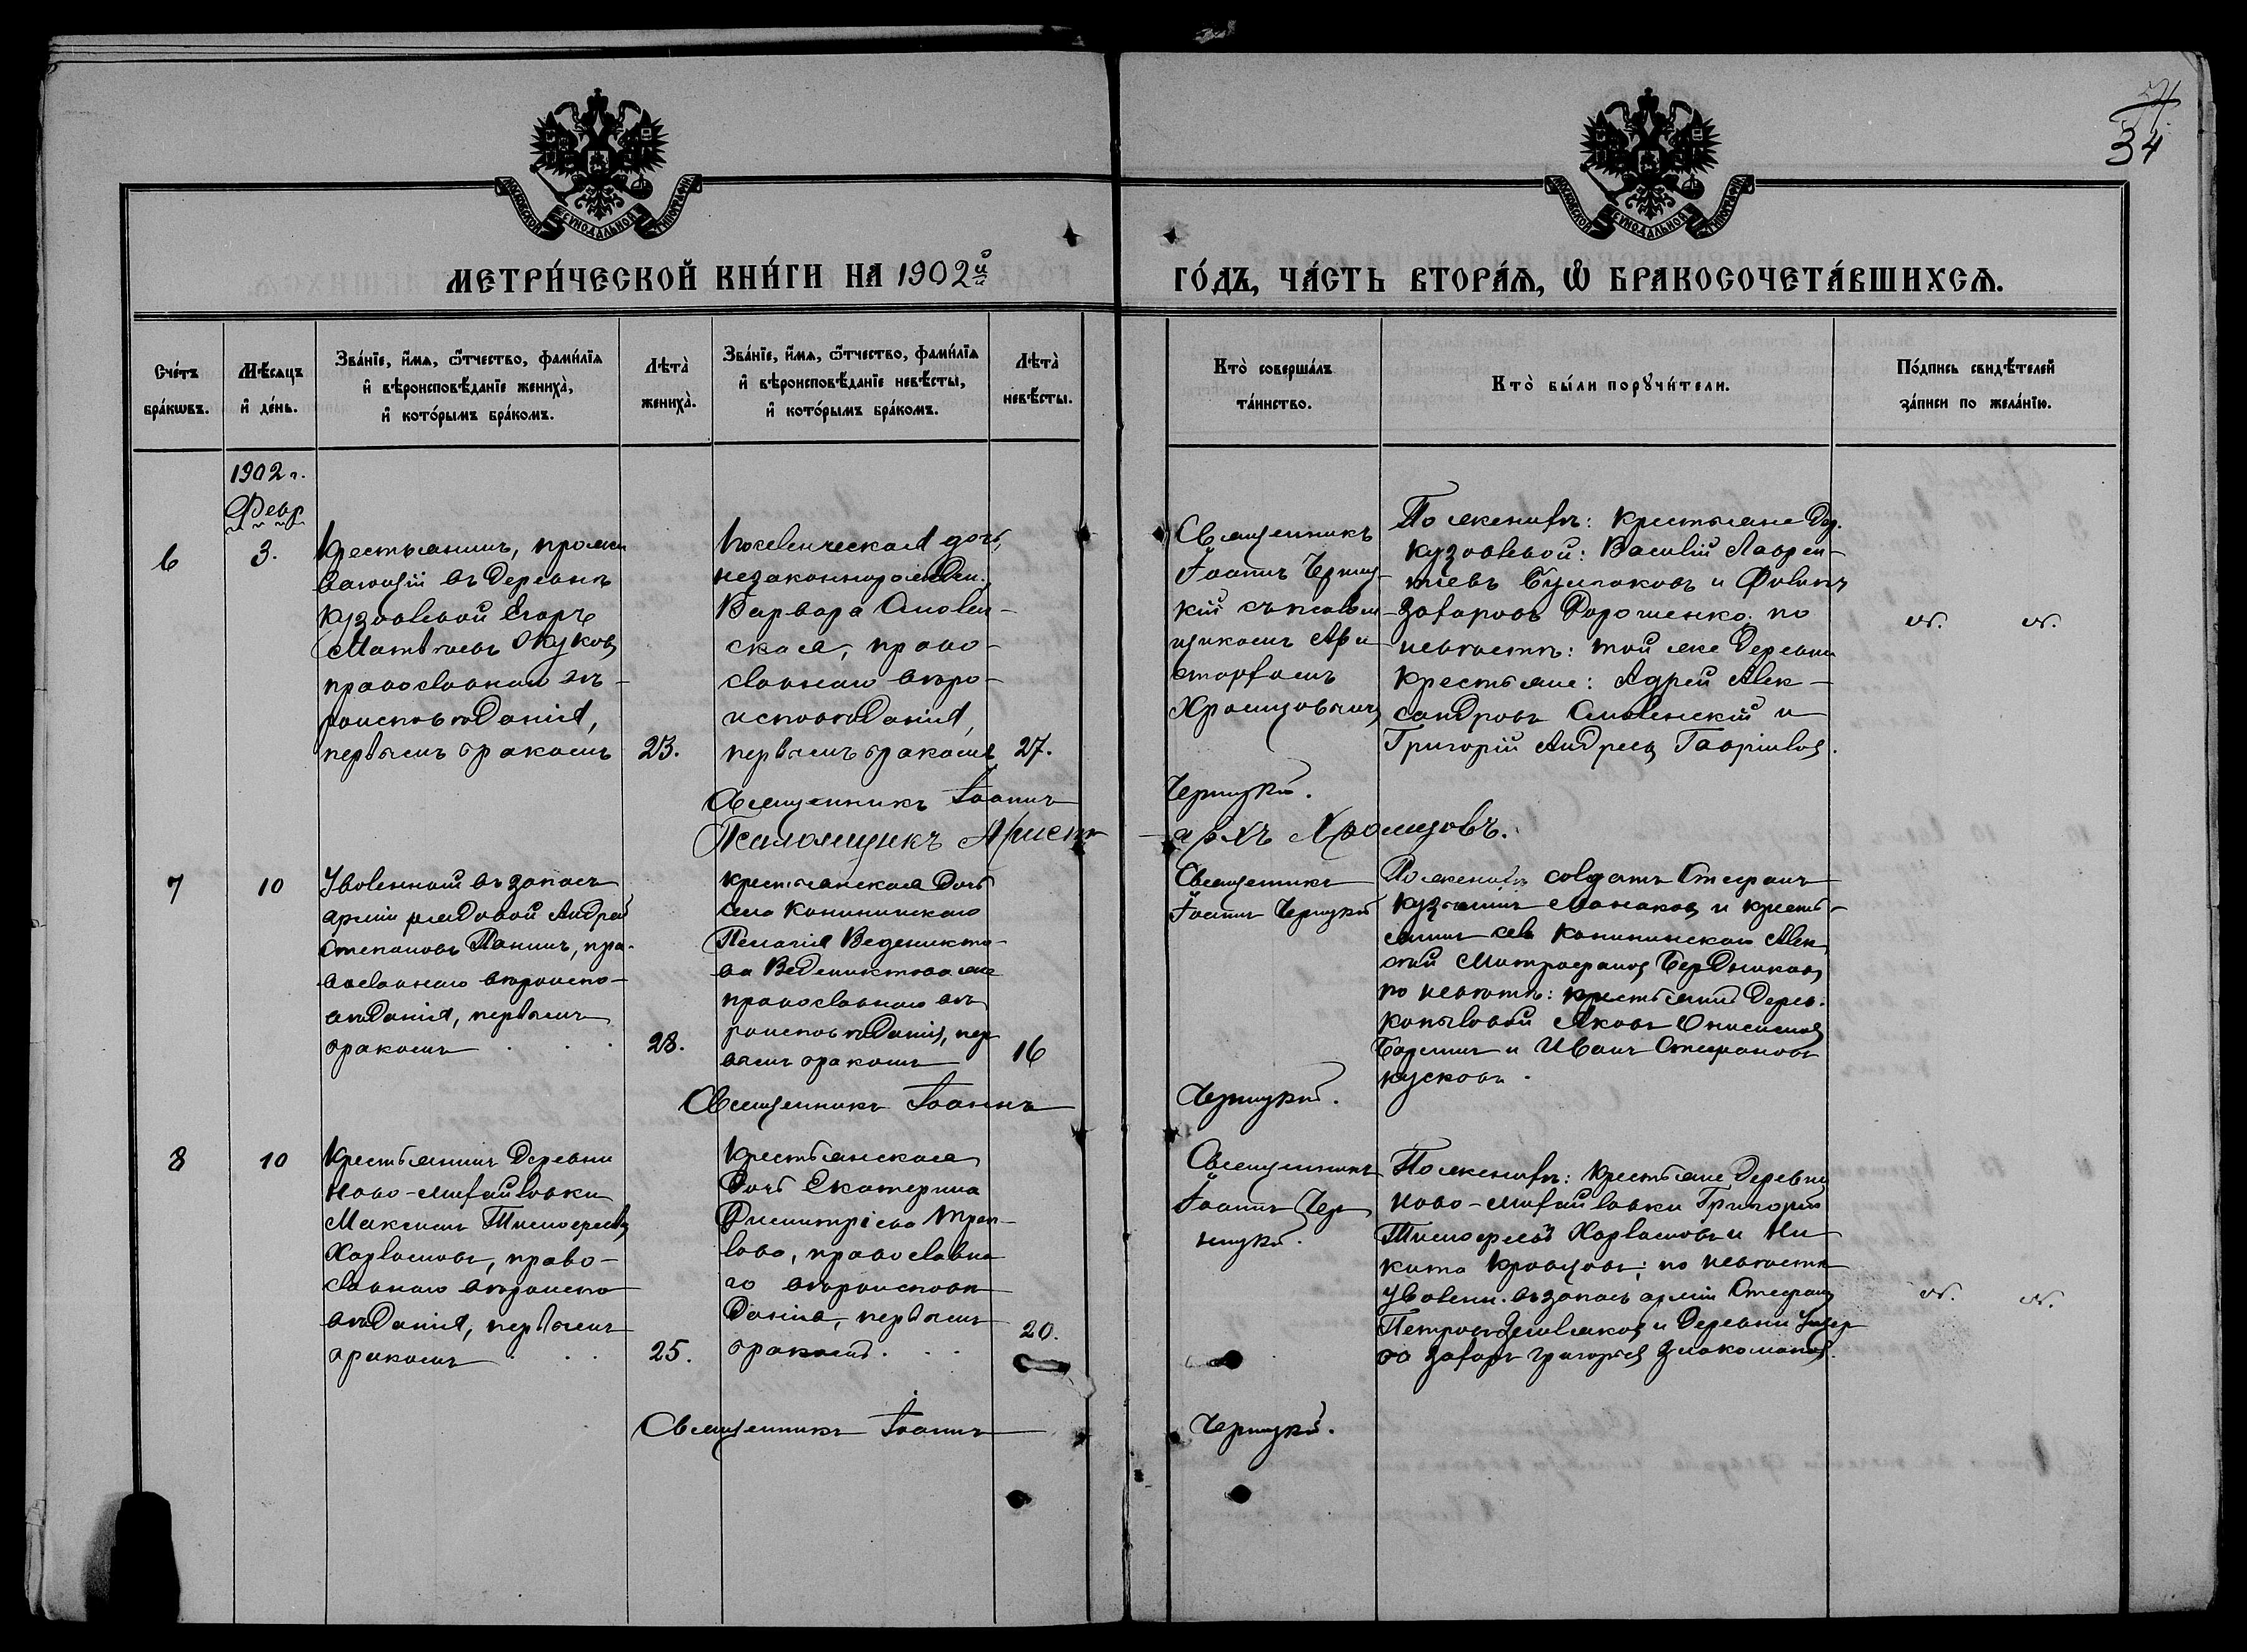 34
МОСКОВСКОЙ СѴНОДАЛЬНОЙ ТИПОГРАФІИ
МОСКОВСКОЙ СѴНОДАЛЬНОЙ ТИПОГРАФІИ
МЕТРИ́ЧЕСКОЙ КНИ́ГИ НА 1902й
ГО́ДЪ, ЧА́СТЬ ВТОРА́Ѧ, Ѿ БРАКОСОЧЕТА́ВШИХСѦ.
Сче́тъ
бра́кѡвъ.
Мѣ́сяцъ
и҆ де́нь.
Зва́нїе, и҆́мѧ, ѻ҆́тчество, фами́лїѧ
и҆ вѣроисповѣ́данїе жениха̀,
и҆ кото́рымъ бра́комъ.
Лѣта̀
жениха̀.
Зва́нїе, и҆́мѧ, ѻ҆́тчество, фами́лїѧ
и҆ вѣроисповѣ́данїе невѣ́сты,
и҆ кото́рымъ бра́комъ.
Лѣта̀
невѣ́сты.
Кто̀ соверша́лъ
та́инство.
Кто̀ бы́ли порꙋчи́тели.
По́дпись свидѣ́телей
за́писи по жела́нїю.
1902 г.
Февр
6
3.
Крестьянинъ, прожи
вающій въ деревнѣ
Кузовлевой Егоръ
Матвѣевъ Жуковъ
православнаго вѣ-
роисповѣданія,
первымъ бракомъ
23.
дочь,
незаконнорожден.
Варвара Смолен-
ская, право-
славнаго вѣро-
исповѣданія,
первымъ бракомъ
27.
Священникъ
Іоаннъ Черниц-
кій съ псалом-
щикомъ Ари
стархомъ
Хромцовымъ
По женихѣ: крестьяне дер.
Кузовлевой: Василій Лаврен-
тіевъ Булгаковъ и Филипъ
Захаровъ Дорошенко; по
невѣстѣ: той же деревни
крестьяне: Адрей Алек-
сандровъ Смоленскій и
Григорій Андреевъ Гавриловъ.
Священникъ Іоаннъ
Черницкій.
Псаломщикъ Арист
архъ Хромцовъ.
7
10
Уволенный въ запасъ
арміи рядовой Андрей
Степановъ Панинъ, пра-
вославнаго вѣроиспо-
вѣданія, первымъ
бракомъ . . .
28.
крестьянская дочь
села Кипинскаго
Пелагія Веденикто-
ва Веденихтова же
православнаго вѣ
роисповѣданія, пер
вымъ бракомъ
16
Священникъ
Іоаннъ Черницкій
По женихѣ солдатъ Стефанъ
Кузьминъ Монаковъ и кресть-
янинъ села Кипинскаго Алек
сѣй Митрофановъ Бердниковъ,
по невѣстѣ: крестьянинъ дерев.
Копыловой Яковъ Онисимовъ
и Иванъ Стефановъ
Кусковъ.
Священникъ Іоаннъ
Черницкій.
8
10
Крестьянинъ деревни
Ново-Михайловки
Максимъ Тимофеевъ
Харламовъ, право-
славнаго вѣроиспо
вѣданія, первымъ
бракомъ . . .
25.
Крестьянская
дочь Екатерина
Димитріева
православна
го вѣроисповѣ
данія, первымъ
бракомъ. . .
20.
Священникъ
Іоаннъ Чер
ницкій.
По женихѣ: крестьяне деревни
Ново-Михайловки Григорій
Тимофеевъ Харламовъ и Ни
кита Кравцовъ; по невѣстѣ
уволенн. въ запасъ арміи Стефанъ
Петровъ и деревни
Захаръ Григорьевъ
Священникъ Іоаннъ
Черницкій.